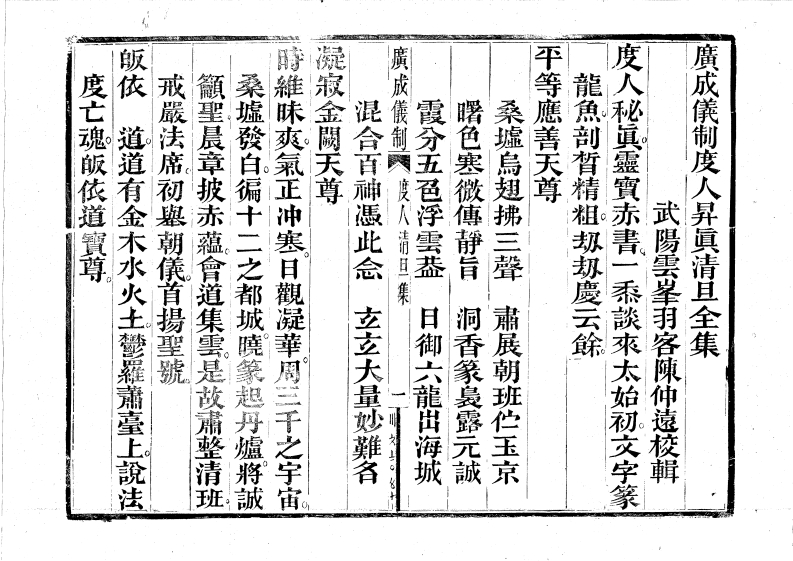 廣成儀制度人昇眞清旦全集
武陽雲峯羽客陳仲遠校輯
度人秘眞靈寶赤書一黍談來太始初文字篆
龍魚剖晳精粗刼刼慶云餘
平等應善天尊
桑墟烏翅拂三聲　肅展朝班伫玉京
曙色寒微傳靜旨　洞香篆裊露元誠
霞分五色浮雲葢　日御六龍出海城
廣成儀制　度人清旦集　一
混合百神憑此念　玄玄大量妙難各
凝寂金闕天尊
時維昧爽氣正冲寒日觀凝華周三千之宇宙
桑墟發白徧十二之都城曉篆起丹爐將誠
籲聖晨章披赤蘊會道集雲是故肅整清班
戒嚴法席初舉朝儀首揚聖號
皈依　道道有金木水火土鬱羅蕭臺上說法
度亡魂皈依道寶尊